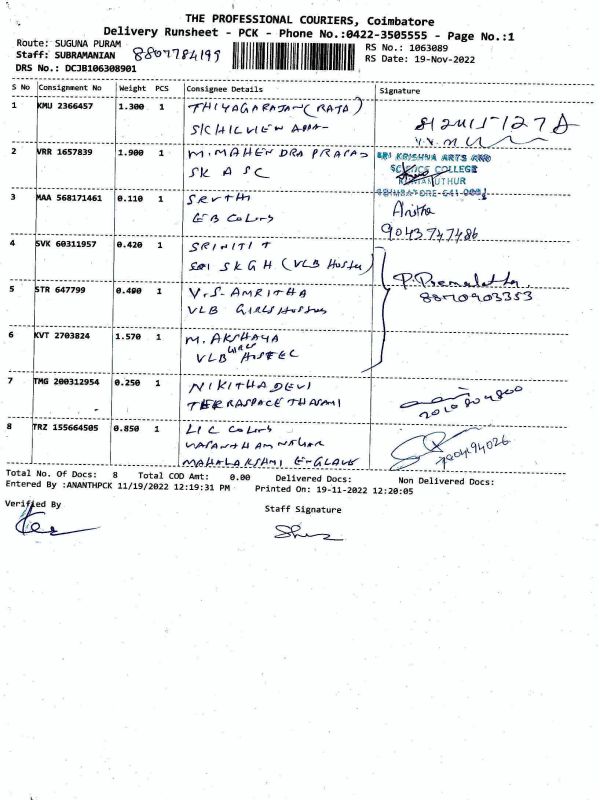 THE PROFESSIONAL COURIERS, Coimbatore
Delivery Runsheet - PCK - Phone No.:0422-3505555 - Page No.:1
Route: SUGUNA PURAM
RS No.: 1063089
Staff: SUBRAMANIAN 8807784199
RS Date: 19-Nov-2022
DRS No.: DCJB106308901
S No Consignment No Weight PCS Consignee Details Signature
1 KMU 2366457 1.300 1 THIYAGARAJAN (RAJA)
2 VRR 1657839 1.900 1 M. MAHENDRA PRASAD SRI KRISHNA ARTS AND
SK A SC SCIENCE COLLEGE
KUNIAMUTHUR
COIMBATORE-641 008
3 MAA 568171461 0.110 1 SRUTHI Anitha
EB COLONY 9043747486
4 SVK 60311957 0.420 1 SRINITI T
SKGH (VLB Hostel) P. Premalatha
5 STR 647799 0.400 1 V.S. AMRITHA 8870903353
VLB GIRLS Hostel
6 KVT 2703824 1.570 1 M. AKSHAYA
VLB GIRLS HOSTEL
7 TMG 200312954 0.250 1 NIKITHA DEVI
8 TRZ 155664505 0.850 1 LIC COLONY
VASANTHAM NAGAR
MAHALAKSHMI ENCLAVE
Total No. Of Docs: 8 Total COD Amt: 0.00 Delivered Docs: Non Delivered Docs:
Entered By :ANANTHPCK 11/19/2022 12:19:31 PM Printed On: 19-11-2022 12:20:05
Verified By
Staff Signature